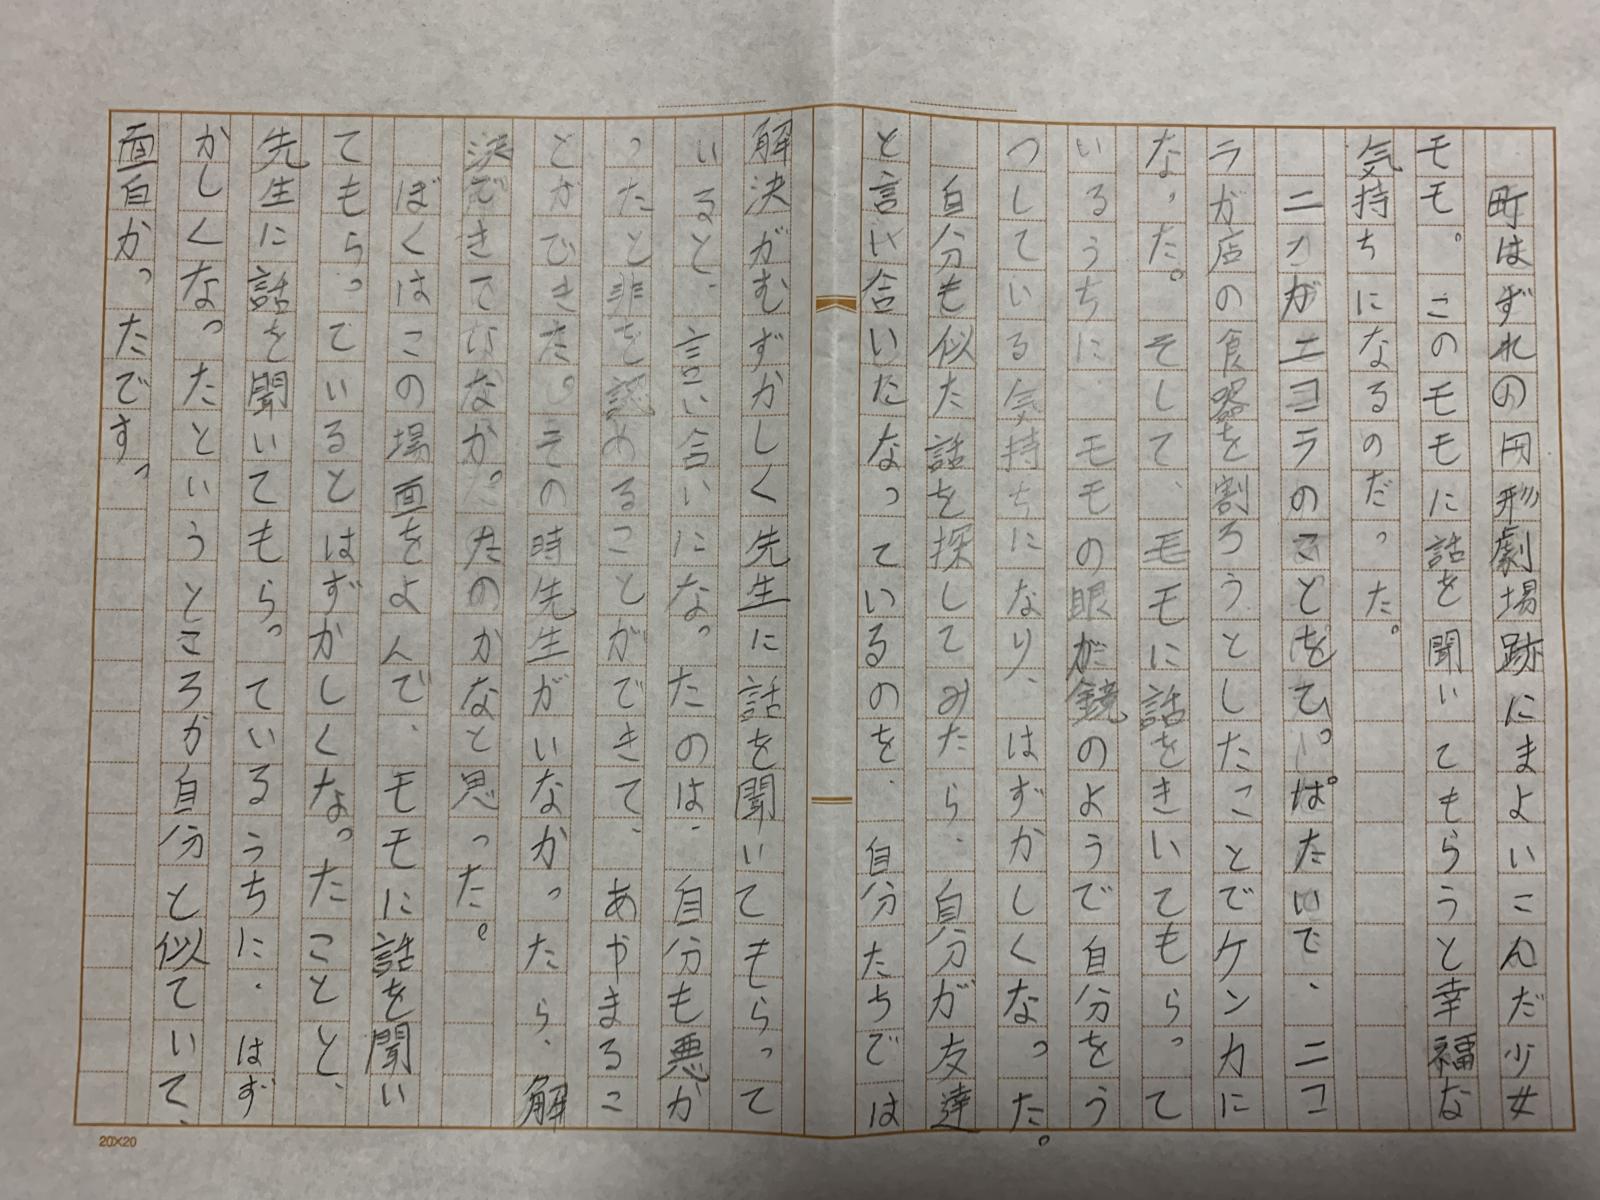 町はずれの円形劇場跡にまよいこんだ少女
モモ。このモモに話を聞いてもらうと幸福な
気持ちになるのだった。
ニカがエコラのことをひっぱたいで、ニコ
ラが店の食器を割ろうとしたことでケンカに
なった。そして、モモに話をきいてもらって
いるうちに、モモの眼が鏡のようで自分をう
つしている気持ちになり、はずかしくなった。
自分も似た話を探してみたら、自分が友達
と言い合いたなっているのを、自分たちでは
解決がむずかしく先生に話を聞いてもらって
いると、言い合いになったのは、自分も悪か
ったと非を認めることができて、あやまるこ
とができた。その時先生がいなかったら、解
決できていなかったのかなと思った。
ぼくはこの場面をよんで、モモに話を聞い
てもらっているとはずかしくなったことと、
先生に話を聞いてもらっているうちに、はず
かしくなったというところが自分と似ていて、
面白かったです。
20×20